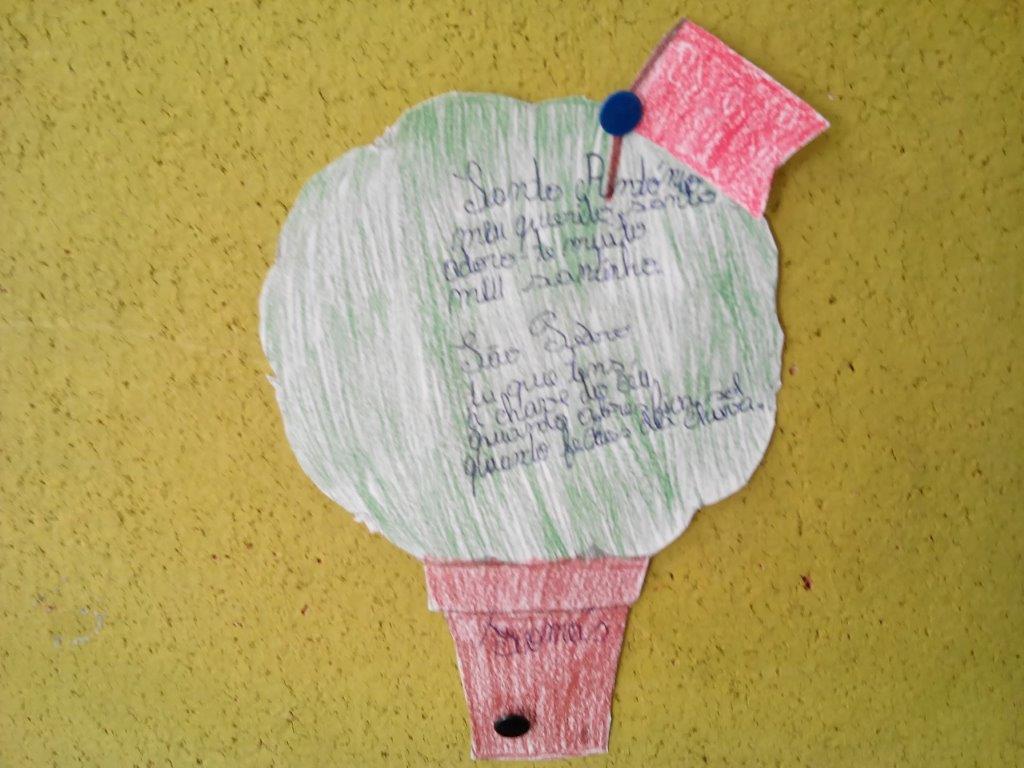 Santo António
meu querido santo
adoro-te muito
meu santinho.
São Pedro
tu que tens
a chave do céu
quando abres faz sol
quando fechas faz chuva.